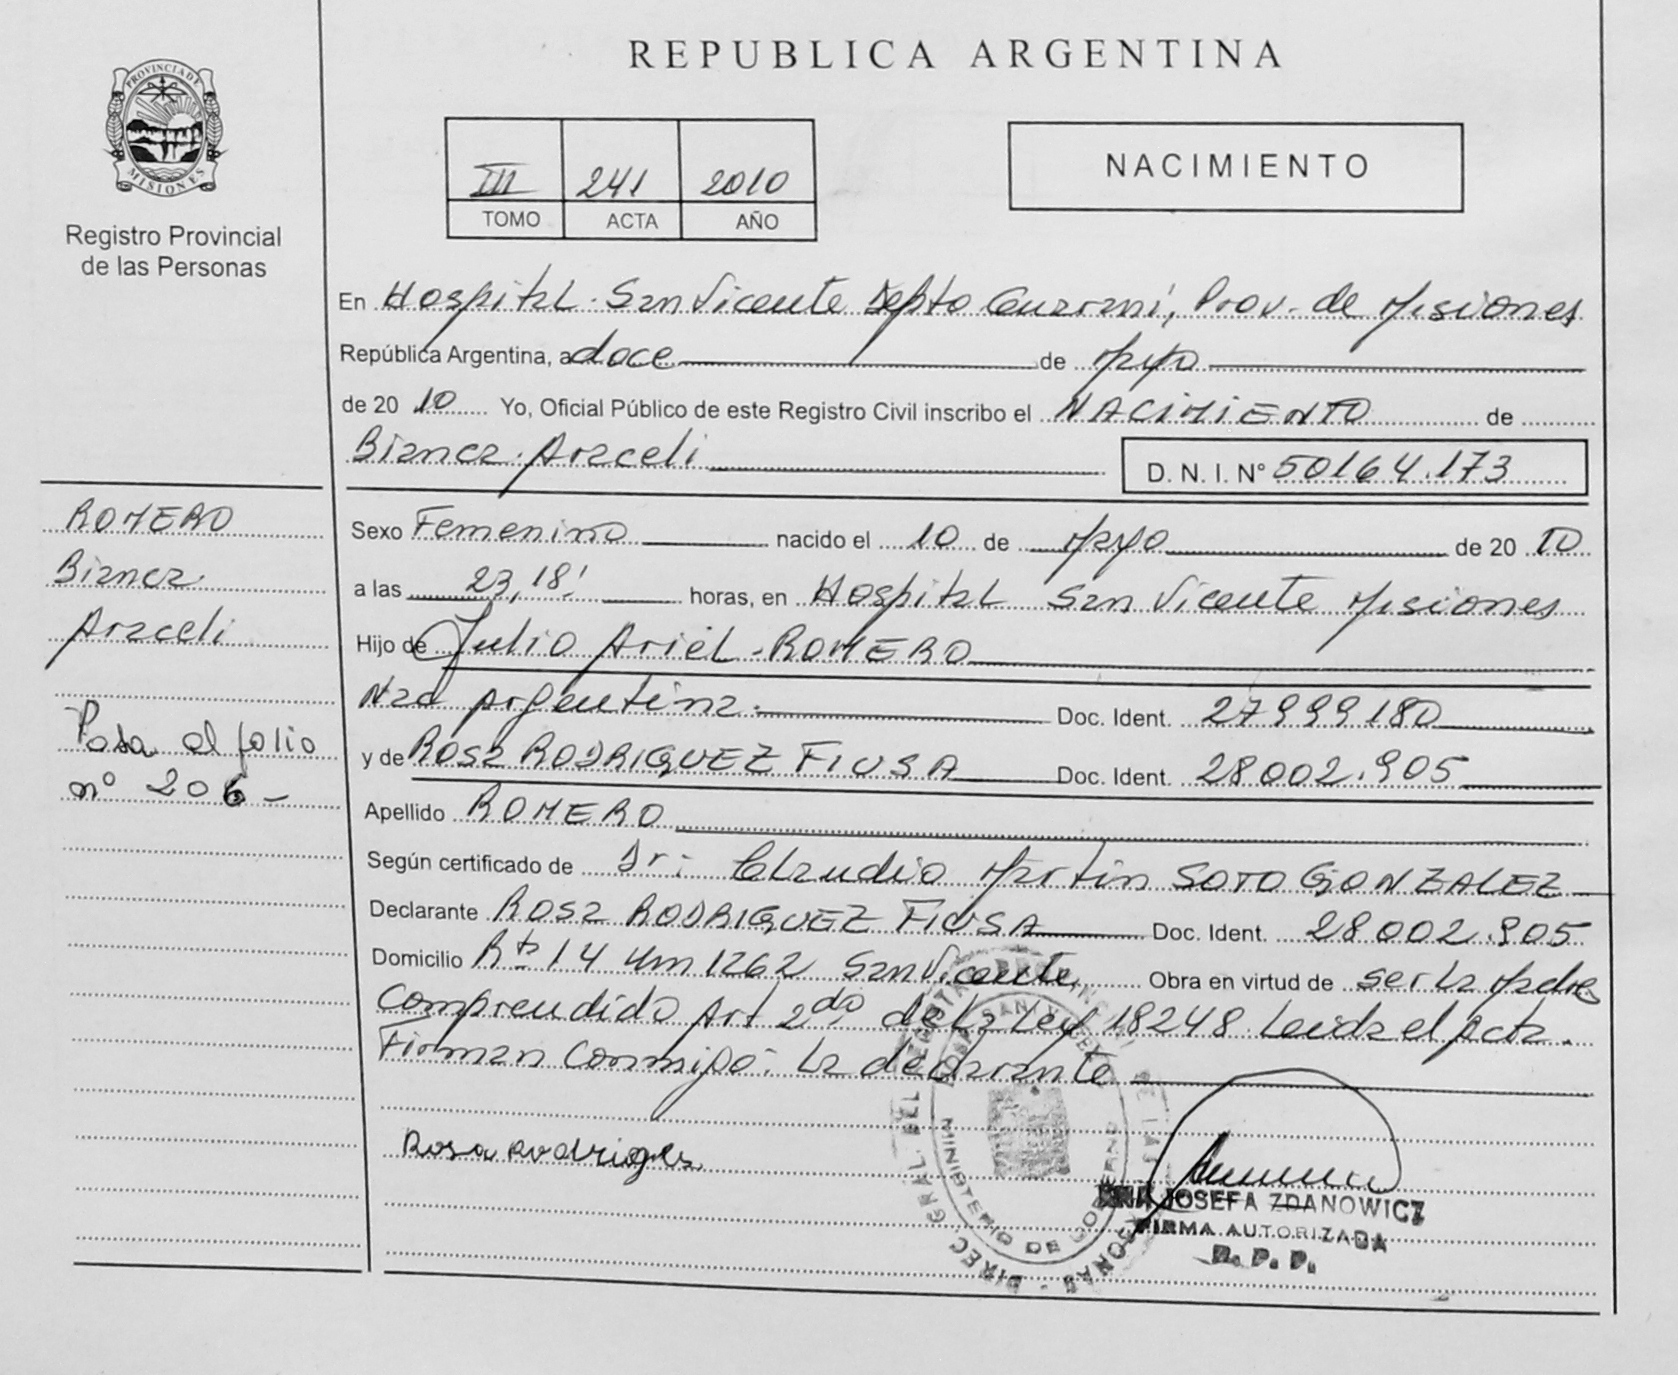 PROVINCIA DE
MISIONES
Registro Provincial
de las Personas
REPUBLICA ARGENTINA
III 241 2010
TOMO ACTA AÑO
NACIMIENTO
En Hospital San Vicente Depto Guaraní, Prov. de Misiones
República Argentina, a doce de Mayo
de 20 10 Yo, Oficial Público de este Registro Civil inscribo el NACIMIENTO de
Bianca Araceli D. N. I. N° 50164.173
ROMERO
Bianca
Araceli
Pasa al folio
nº 206 -
Sexo Femenino nacido el 10 de Mayo de 20 10
a las 23,18' horas, en Hospital San Vicente Misiones
Hijo de Julio Ariel - ROMERO
Nad Argentina. Doc. Ident. 27999180
y de ROSA RODRIGUEZ FIUSA Doc. Ident. 28002.905
Apellido ROMERO
Según certificado de Dr: Claudio Martin SOTO GONZALEZ
Declarante ROSA RODRIGUEZ FIUSA Doc. Ident. 28002.905
Domicilio Rta 14 Km 1262 San Vicente Obra en virtud de ser la Madre
Comprendido Art 2do de la Ley 18248. Leida el Acta.
Firman Conmigo: la declarante
Rosa Rodrigues
JOSEFA ZDANOWICZ
FIRMA AUTORIZADA
R. P. P.
MINISTERIO DE GOBIERNO